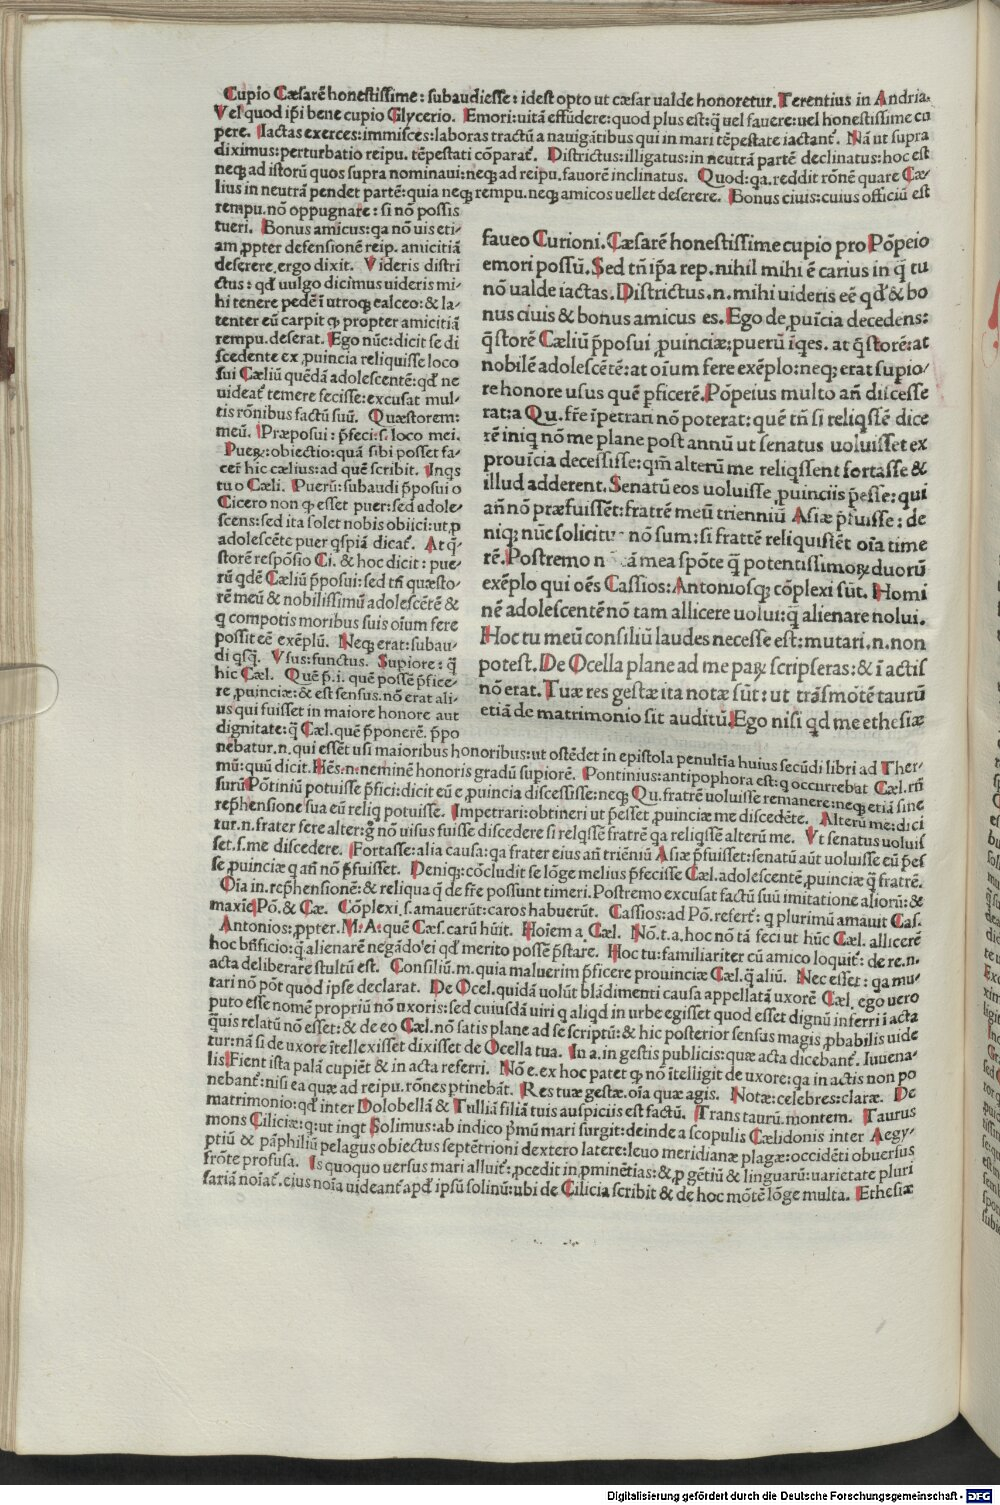 Cupio Cæsarē honestissime: subaudiesse: idest opto ut cæsar ualde honoretur. Terentius in Andria.
Vel quod ip̄i bene cupio Glycerio. Emori: uitā effūdere: quod plus est: q̄ uel fauere: uel honestissime cu
pere. Iactas exerces: immisces: laboras tractū a nauigātibus qui in mari tēpestate iactant᷑. Nā ut supra
diximus: perturbatio reipu. tēpestati cōparat᷑. Districtus: illigatus: in neutrā partē declinatus: hoc est
neqꝫ ad istorū quos supra nominaui: neqꝫ ad reipu. fauorē inclinatus. Quod: qa. reddit rōnē quare Cæ-
lius in neutrā pendet partē: quia neqꝫ rempu. neqꝫ amicos uellet deserere. Bonus ciuis: cuius officiū est
rempu. nō oppugnare: si nō possis
tueri. Bonus amicus: qa nō uis eti-
am ꝓpter defensionē reip. amicitiā
deserere. ergo dixit. Videris distri
ctus: qđ uulgo dicimus uideris mi-
hi tenere pedē ī utroqꝫ calceo: & la-
tenter eū carpit ꝙ propter amicitiā
rempu. deserat. Ego nūc: dicit se di
scedente ex ꝓuincia reliquisse loco
sui Cæliū quēdā adolescentē: qđ ne
uideat᷑ temere fecisse: excusat mul-
tis rōnibus factū suū. Quæstorem:
meū. Præposui: p̄feci: s. loco mei.
Pueꝝ: obiectio: quā sibi posset fa-
cer̄ hic cælius: ad quē scribit. Inqs
tu o Cæli. Puerū: subaudi p̄posui o
Cicero non ꝙ esset puer: sed adole-
scens: sed ita solet nobis obiici: ut ꝓ
adolescēte puer qspiā dicat᷑. At q̄-
storē respōsio Ci. & hoc dicit: pue-
rū qdē Cæliū p̄posui: sed tn̄ quæsto-
rē meū & nobilissimū adolescētē &
q compotis moribus suis oīum fere
possit eē exēplū. Neqꝫ erat: subau-
di qsq̄. Vsus: functus. Supiore: q̄
hic Cæl. Quē p̄. i. quē possē p̄fice-
re ꝓuinciæ: & est sensus. nō erat ali-
us qui fuisset in maiore honore aut
dignitate: q̄ Cæl. quē p̄ponerē. p̄po
faueo Curioni. Cæsarē honestissime cupio pro Pōpeio
emori possū. Sed tn̄ ip̄a rep. nihil mihi ē carius in q̄ tu
nō ualde iactas. Districtus. n. mihi uideris eē qđ & bo
nus ciuis & bonus amicus es. Ego de ꝓuīcia decedens:
q̄storē Cæliū p̄posui ꝓuinciæ: puerū īqes. at q̄storē: at
nobilē adolescētē: at oīum fere exēplo: neqꝫ erat supio-
re honore usus quē p̄ficerē. Pōpeius multo an̄ discesse
rat: a Qu. fr̄e īpetrari nō poterat: quē tn̄ si reliqssē dice
rē iniq nō me plane post annū ut senatus uoluisset ex
prouīcia decessisse: qm̄ alterū me reliqssent fortasse &
illud adderent. Senatū eos uoluisse ꝓuinciis p̄esse: qui
an̄ nō præfuissēt: fratrē meū trienniū Asiæ p̄fuisse: de
niqꝫ nūc solicitu nō sum: si fratrē reliquissēt oīa time
rē. Postremo n cā mea spōte q̄ potentissimoꝝ duorū
exēplo qui oēs Cassios: Antoniosqꝫ cōplexi sūt. Homi
nē adolescentē nō tam allicere uolui: q̄ alienare nolui.
Hoc tu meū consiliū laudes necesse est: mutari. n. non
potest. De Ocella plane ad me paꝝ scripseras: & ī actis
nō erat. Tuæ res gestæ ita notæ sūt: ut trāsmōtē taurū
etiā de matrimonio sit auditū. Ego nisi qđ me ethesiæ
nebatur. n. qui essēt usi maioribus honoribus: ut ostēdet in epistola penultīa huius secūdi libri ad Ther-
mū: quū dicit. Hēs: n: neminē honoris gradū supiorē. Pontinius: antipophora est: q occurrebat Cæl. rn̄
surū Pōtiniū potuisse p̄fici: dicit eū e ꝓuincia discessisse: neqꝫ Qu. fratrē uoluisse remanere: neqꝫ etiā sine
rep̄hensione sua eū reliq potuisse. Impetrari: obtineri ut p̄esset ꝓuinciæ me discedēte. Alterū me: dici
tur. n. frater fere alter: ḡ nō uisus fuisse discedere si relqssē fratrē qa reliqssē alterū me. Vt senatus uoluis
set. s. me discedere. Fortasse: alia causa: qa frater eius an̄ triēniū Asiæ p̄fuisset: senatū aūt uoluisse eū p̄es
se ꝓuinciæ q an̄ nō p̄fuisset. Deniqꝫ: cōcludit se lōge melius p̄fecisse Cæl. adolescentē ꝓuinciæ q̄ fratrē.
Oīa in. rep̄hensionē: & reliqua q̄ de fr̄e possunt timeri. Postremo excusat factū suū imitatione aliorū: &
maxīe Pō. & Cæ. Cōplexi. s. amauerūt: caros habuerūt. Cassios: ad Pō. refert᷑: q plurimū amauit Cas.
Antonios: ꝓpter. M. A: quē Cæs. carū hūit. Hoīem a Cæl. Nō. t. a. hoc nō tā feci ut hūc Cæl. allicerē
hoc bn̄ficio: q̄ alienarē negādo ei qđ merito possē p̄stare. Hoc tu: familiariter cū amico loquit᷑: de re. n.
acta deliberare stultū est. Consiliū. m. quia maluerim p̄ficere prouinciæ Cæl. q̄ aliū. Nec esset: qa mu-
tari nō pōt quōd ipse declarat. De Ocel. quidā uolūt blādimenti causa appellatā uxorē Cæl. ego uero
puto esse nomē propriū nō uxoris: sed cuiusdā uiri q aliqd in urbe egisset quod esset dignū inferri ī acta
q̄uis relatū nō esset: & de eo Cæl. nō satis plane ad se scriptū: & hic posterior sensus magis ꝓbabilis uide
tur: nā si de uxore ītellexisset dixisset de Ocella tua. In a. in gestis publicis: quæ acta dicebant᷑. Iuuena-
lis Fient ista palā cupiēt & in acta referri. Nō e. ex hoc patet ꝙ nō ītelligit de uxore: qa in actis non po
nebant᷑: nisi ea quæ ad reipu. rōnes ptinebāt. Res tuæ gestæ. oīa quæ agis. Notæ: celebres: claræ. De
matrimonio: qđ inter Dolobellā & Tulliā filiā tuis auspiciis est factū. Trans taurū. montem. Taurus
mons Ciliciæ: q: ut inqt Solimus: ab indico p̄mū mari surgit: deinde a scopulis Cælidonis inter Aegy-
ptiū & pāphiliū pelagus obiectus septētrioni dextero latere: leuo meridianæ plagæ: occidēti obuersus
frōte profusa. Is quoquo uersus mari alluit᷑: ꝓcedit in ꝓminētias: & ꝓ gētiū & linguarū: uarietate pluri
fariā noīat᷑. eius noīa uideant᷑ apđ ipsū solinū: ubi de Cilicia scribit & de hoc mōtē lōge multa. Ethesiæ
Digitalisierung gefördert durch die Deutsche Forschungsgemeinschaft - DFG